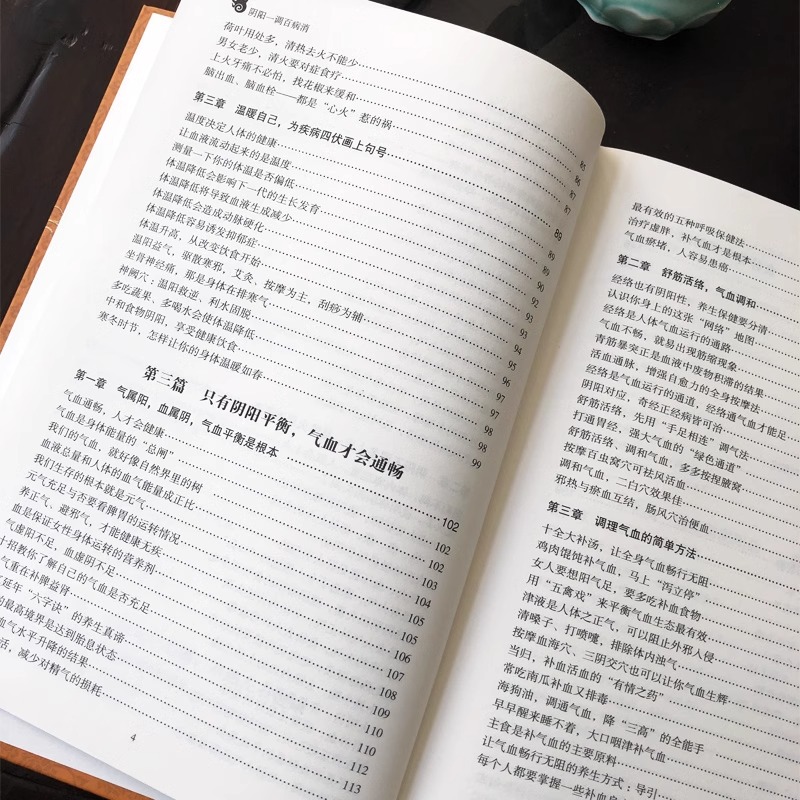 阴阳一调百病消
荷叶用处多，清热去火不能少
男女老少，清火要对症食疗
上火牙痛不必怕，找花椒来缓和
脑出血、脑血栓——都是“心火”惹的祸 85
第三章 温暖自己，为疾病四伏画上句号 86
温度决定人体的健康 87
让血液流动起来的是温度 87
测量一下你的体温是否偏低
体温降低会影响下一代的生长发育 89
体温降低将导致血液生成减少 89
体温降低会造成动脉硬化 89
体温降低容易诱发抑郁症 90
体温升高，从改变饮食开始 92
温阳益气，驱散寒邪，艾灸、按摩为主，刮痧为辅 92
坐骨神经痛，那是身体在排寒气 93
神阙穴：温阳救逆，利水固脱 94
多吃蔬果、多喝水会使体温降低 95
中和食物阴阳，享受健康饮食 97
寒冬时节，怎样让你的身体温暖如春 97
第三篇 只有阴阳平衡，气血才会通畅
第一章 气属阳，血属阴，气血平衡是根本 102
气血通畅，人才会健康 102
气血是身体能量的“总闸” 102
我们的气血，就好像自然界里的树 103
血液总量和人体的血气能量成正比 104
我们生存的根本就是元气 105
元气充足与否要看脾胃的运转情况 105
养正气、避邪气，才能健康无疾 106
血是保证女性身体运转的营养剂 107
气虚阳不足，血虚阴不足 108
十招教你了解自己的气血是否充足 109
气重在补脾益肾 110
延年“六字诀”的养生真谛 110
的最高境界是达到胎息状态 112
血气水平升降的结果 113
活，减少对精气的损耗
4
最有效的五种呼吸保健法
治疗虚胖，补气血才是根本
气血瘀堵，人容易患癌
第二章 舒筋活络，气血调和
经络也有阴阳性，养生保健要分清
认识你身上的这张“网络”地图
经络是人体气血运行的通路
气血不畅，就易出现筋缩现象
青筋暴突正是血液中废物积滞的结果
活血通脉，增强自愈力的全身按摩法
经络是气血运行的通道，经络通气血才能足
阴阳对应，奇经正经病皆可治
舒筋活络，先用“手足相连”调气法
打通胃经，强大气血的“绿色通道”
舒筋活络、调和气血，多多按捏腋窝
按摩百虫窝穴可祛风活血
调和气血，二白穴效果佳
邪热与瘀血互结，肠风穴治便血
第三章 调理气血的简单方法
十全大补汤，让全身气血畅行无阻
鸡肉馄饨补气血，马上“泻立停”
女人要想阳气足，要多吃补血食物
用“五禽戏”来平衡气血生态最有效
津液是人体之正气，可以阻止外邪人侵
清嗓子、打喷嚏，排除体内浊气
按摩血海穴、三阴交穴也可以让你气血生辉
当归，补血活血的“有情之药”
常吃南瓜补血又排毒
海狗油，调通气血，降“三高”的全能手
早早醒来睡不着，大口咽津补气血
主食是补气血的主要原料
让气血畅行无阻的养生方式：导引
每个人都要掌握一些补血